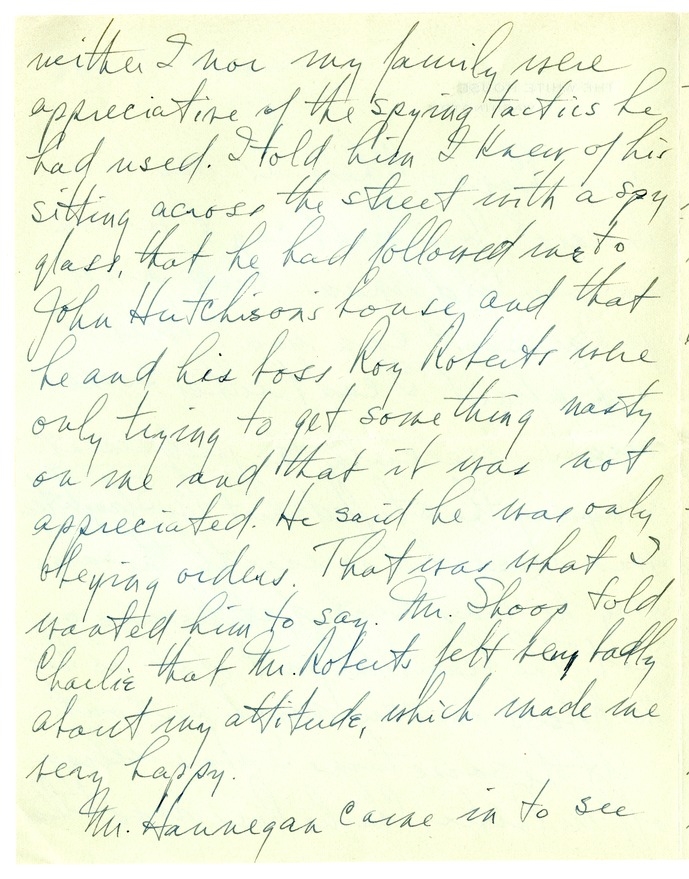 neither I nor my family were
appreciative of the spying tactics he
had used. I told him I knew of his
sitting across the street with a spy
glass, that he had followed me to
John Hutchison's house and that
he and his boss Roy Roberts were
only trying to get something nasty
on me and that it was not
appreciated. He said he was only
obeying orders. That was what I
wanted him to say. Mr. Shoop told
Charlie that Mr. Roberts felt very badly
about my attitude, which made me
very happy.
Mr. Hannegan came in to see